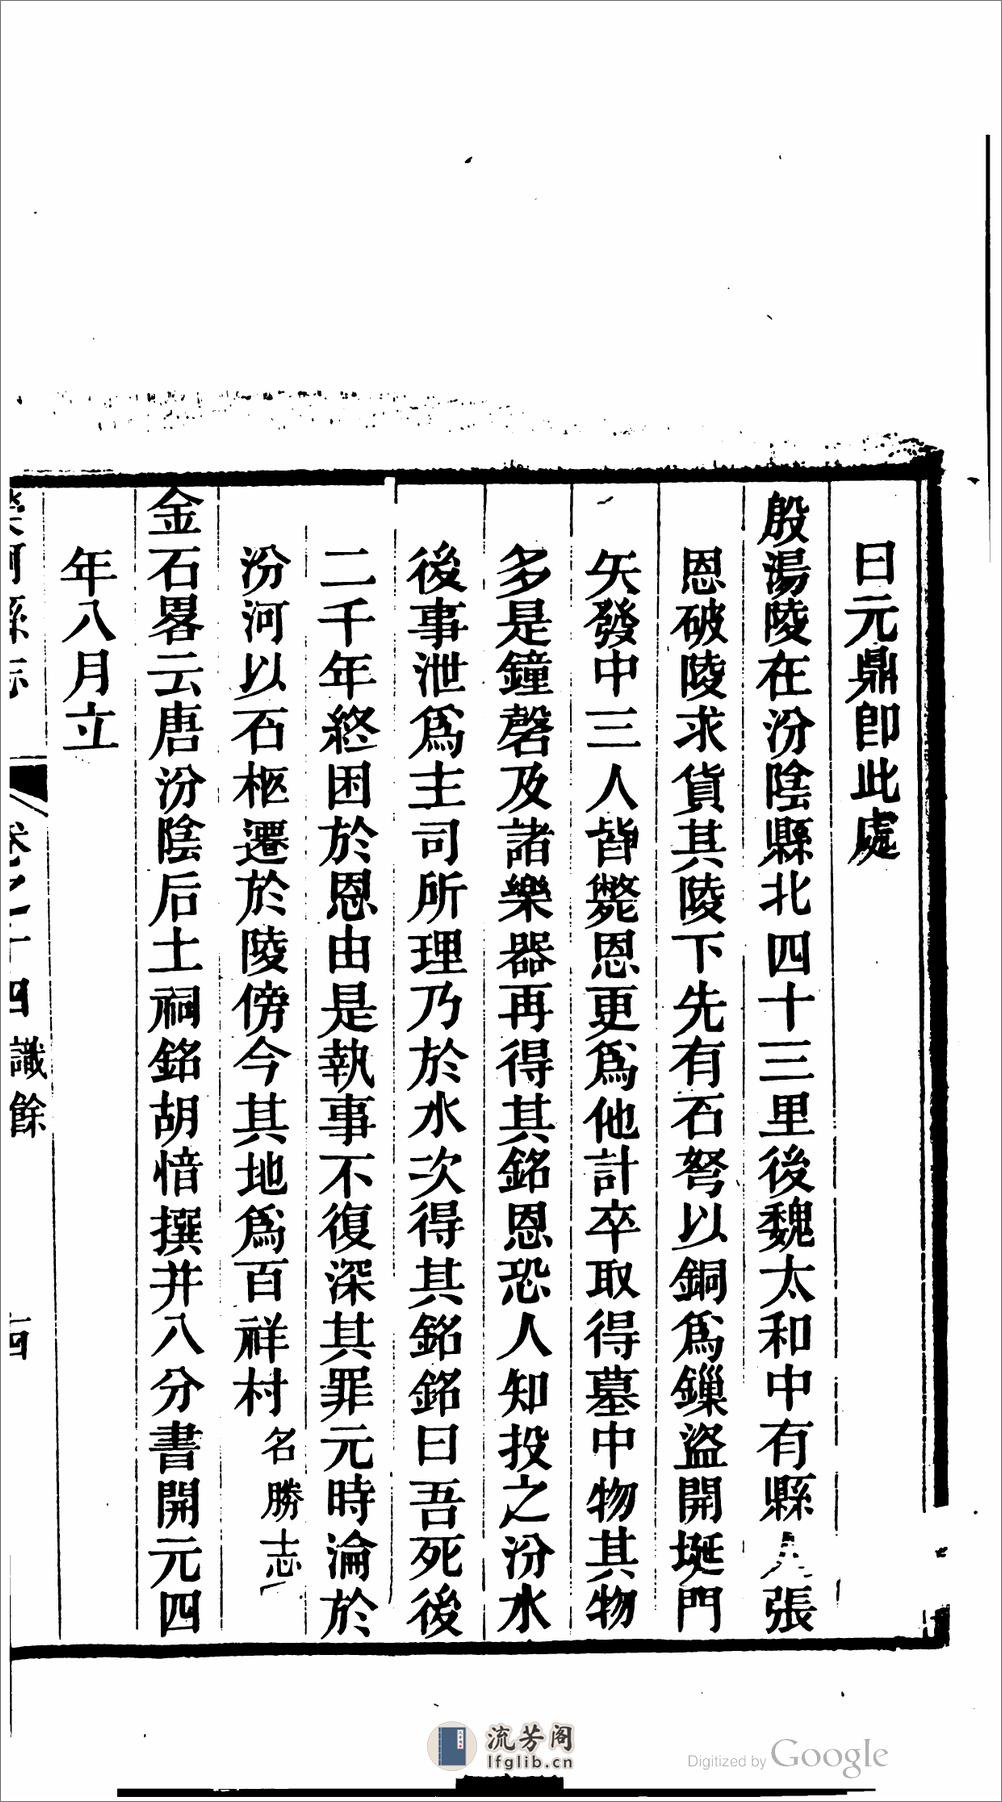 曰元鼎卽此處
殷湯陵在汾陰縣北四十三里後魏太和中有縣人張
恩破陵求貨其陵下先有石弩以銅爲鏁盜開埏門
矢發中三人皆斃恩更爲他計卒取得墓中物其物
多是鐘磬及諸樂器再得其銘恩恐人知投之汾水
後事泄爲主司所理乃於水次得其銘銘曰吾死後
二千年終困於恩由是執事不復深其罪元時淪於
汾河以石柩遷於陵傍今其地爲百祥村名勝志
金石畧云唐汾陰后土祠銘胡愔撰并八分書開元四
年八月立
河縣志 卷之十四 識餘 四
流芳阁
lfglib.cn
Digitized by Google